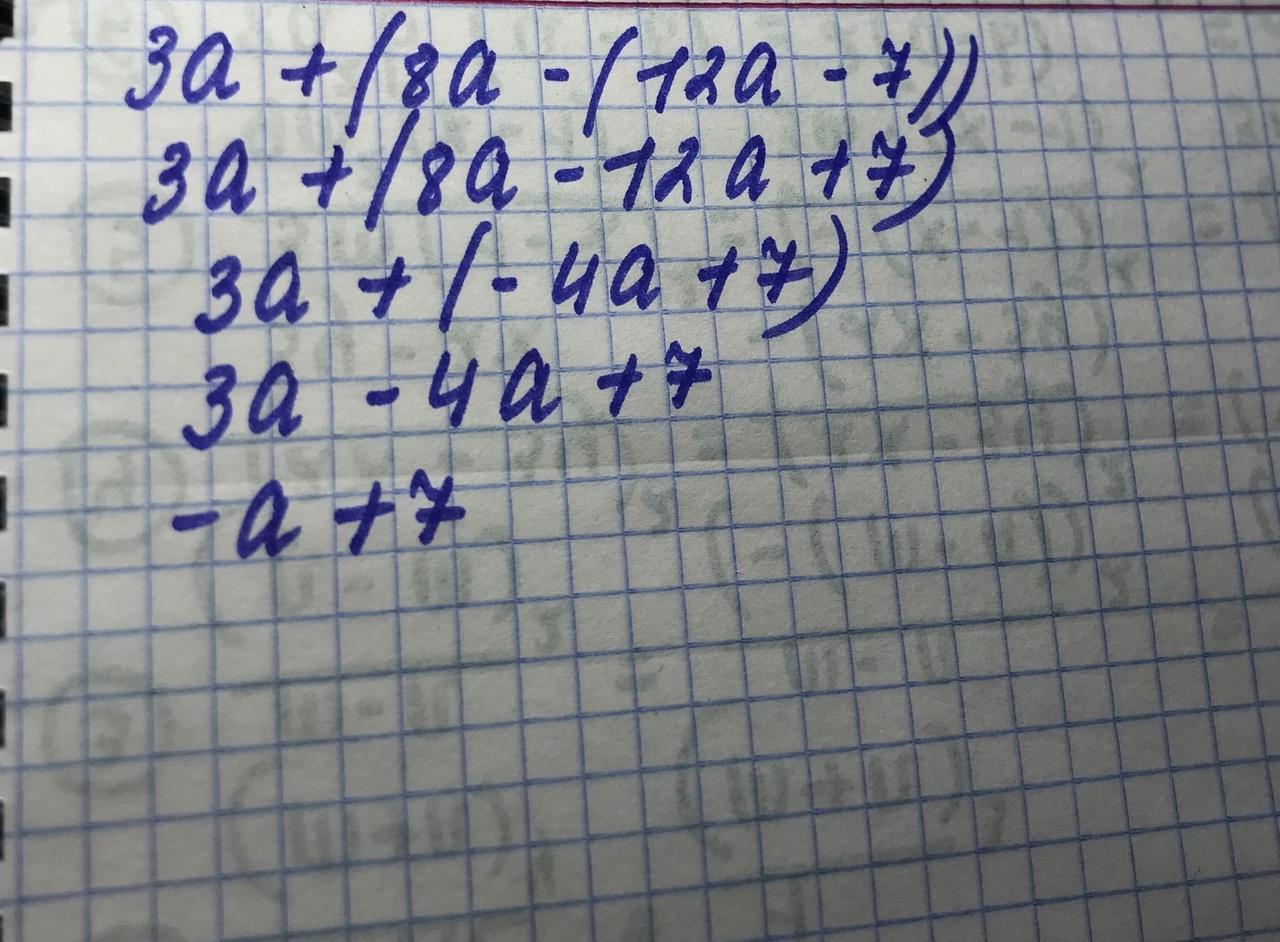 3a + (8a - (12a - 7))
3a + (8a - 12a + 7)
3a + (- 4a + 7)
3a - 4a + 7
- a + 7